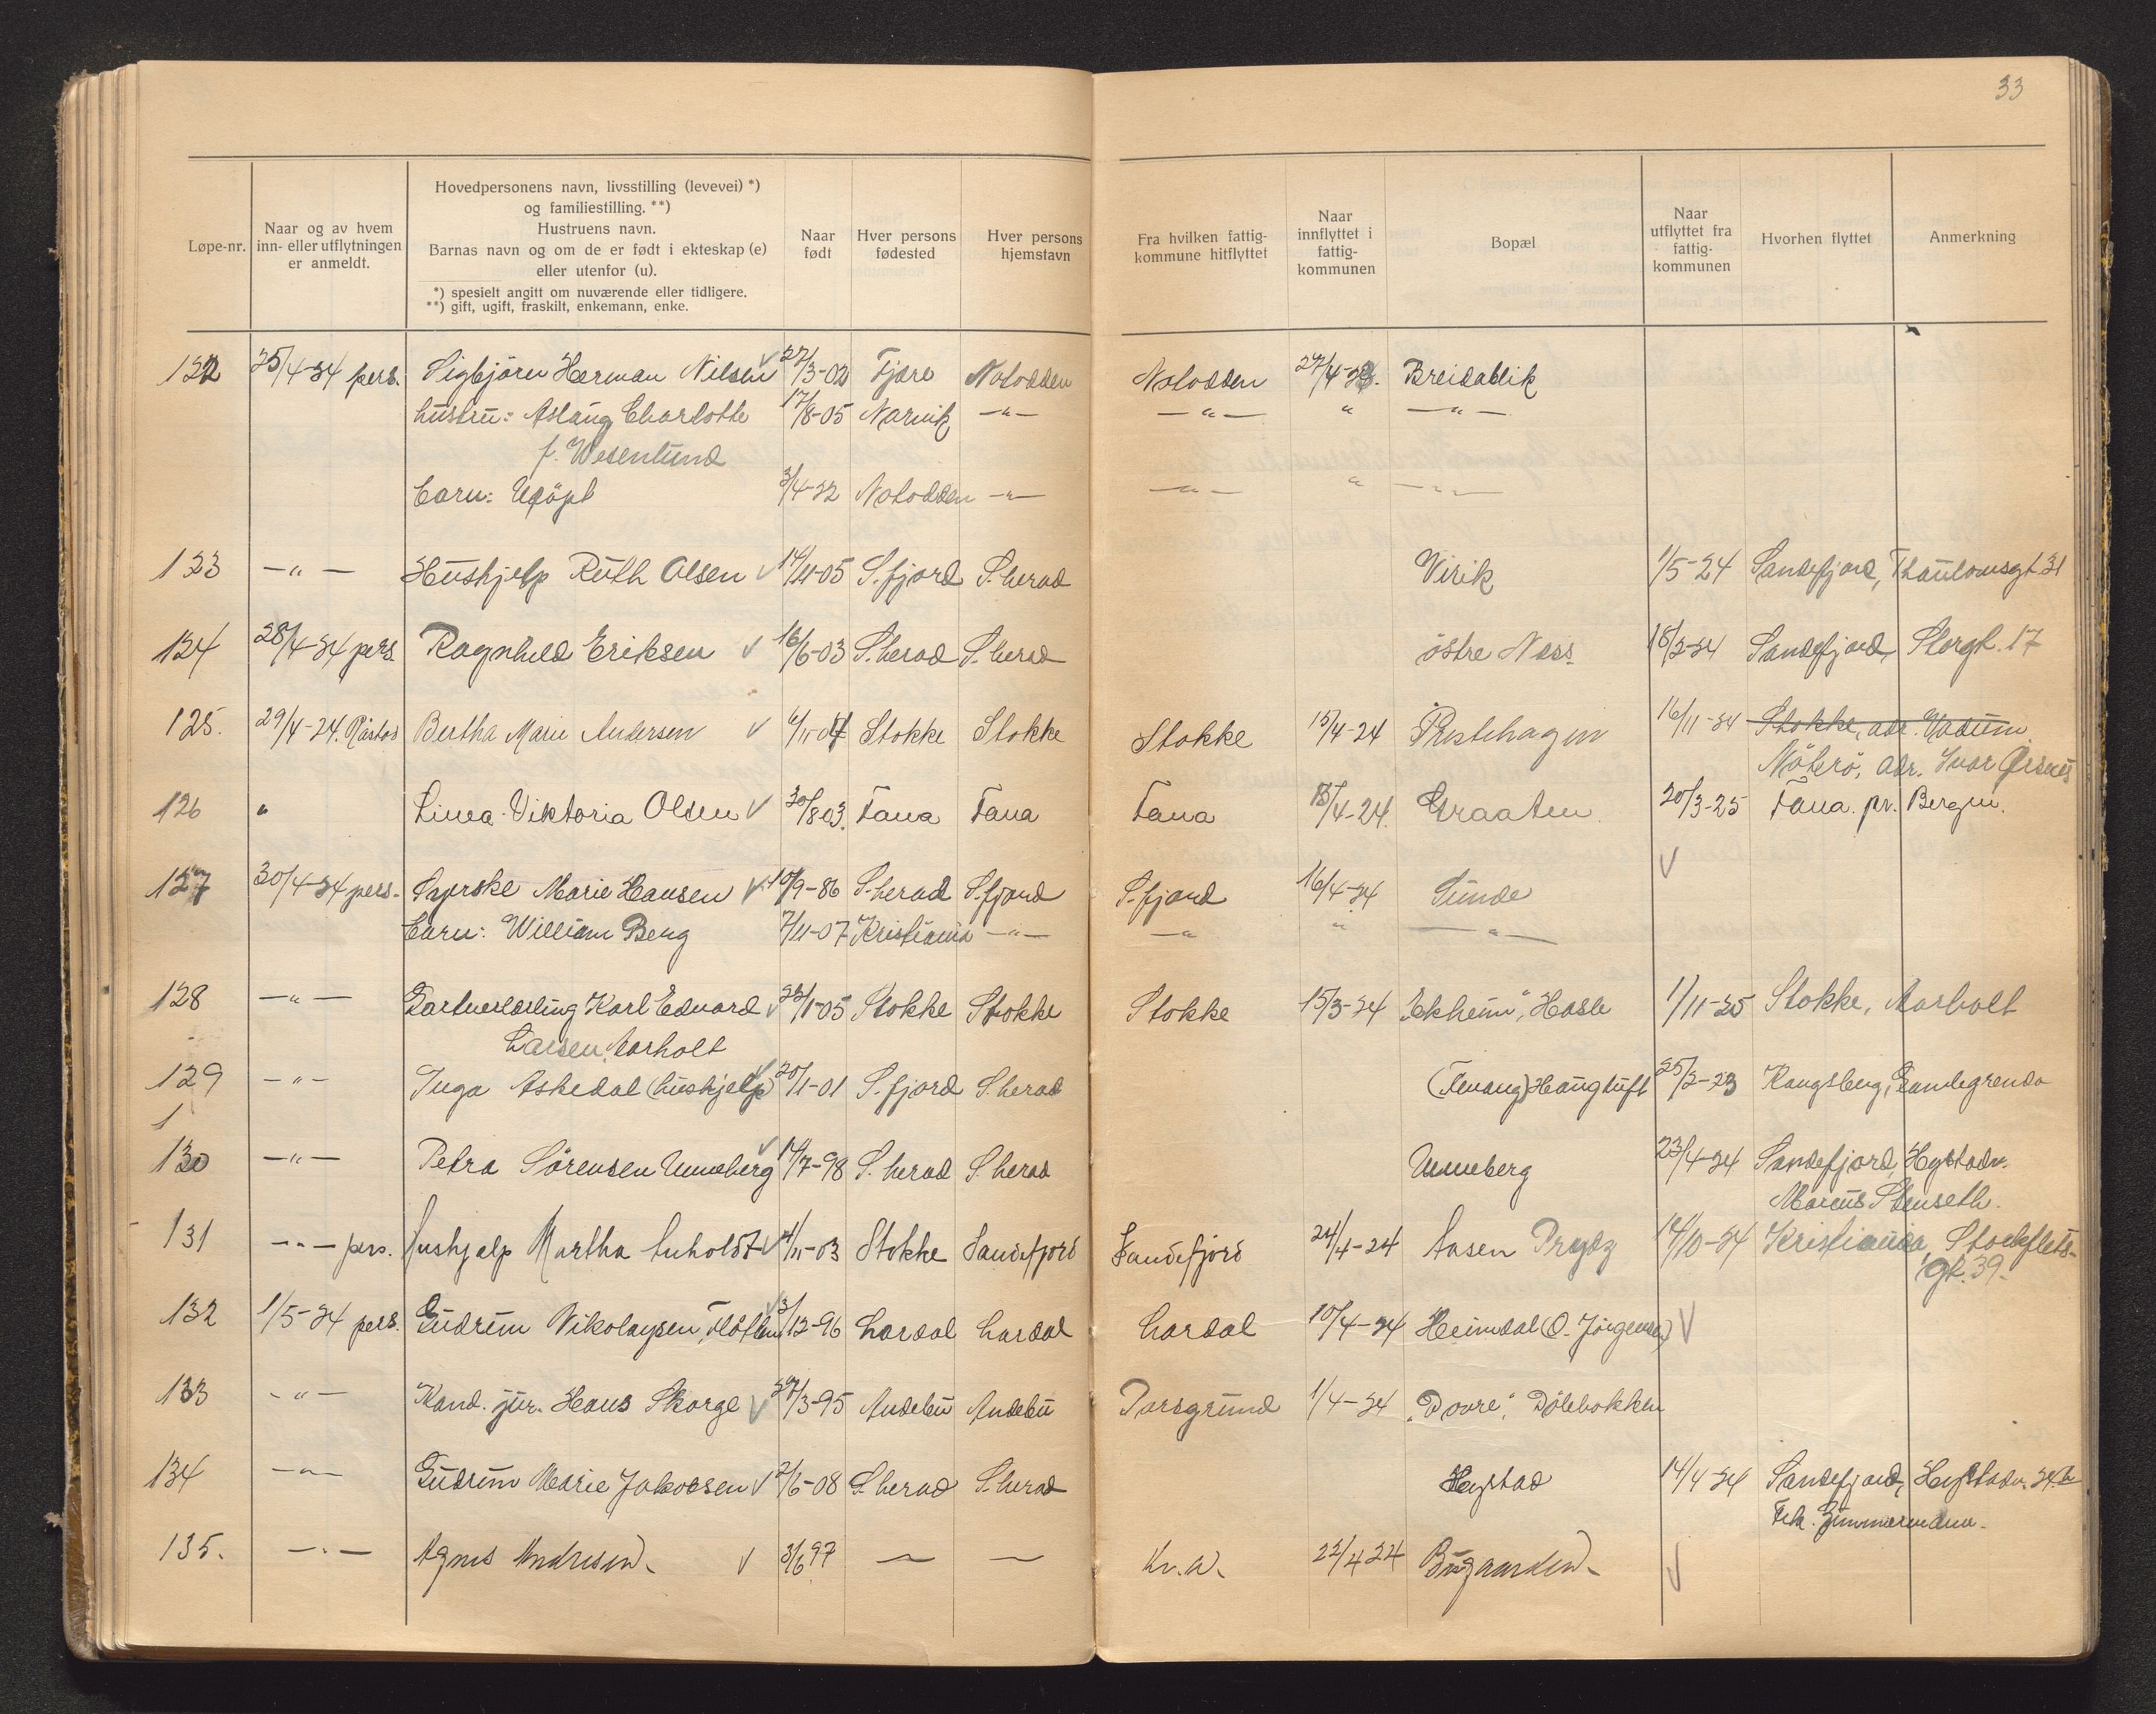 33
Løpe-nr.
Naar og av hvem
inn- eller utflytningen
er anmeldt.
Hovedpersonens navn, livsstilling (levevei) *)
og familiestilling. **)
Hustruens navn.
Barnas navn og om de er født i ekteskap (e)
eller utenfor (u).
*) spesielt angitt om nuværende eller tidligere.
**) gift, ugift, fraskilt, enkemann, enke.
Naar
født
Hver persons
fødested
Hver persons
hjemstavn
Fra hvilken fattig-
kommune hitflyttet
Naar
innflyttet i
fattig-
kommunen
Bopæl
Naar
utflyttet fra
fattig-
kommunen
Hvorhen flyttet
Anmerkning
122 25/4-24 pers. Sigbjörn Herman Nilsen 27/3-02 Fjære Notodden Notodden 27/4-24. Breidablik
hustru: Aslaug Charlotte 17/8-05 Narvik -"- -"- " -"-
f. Wesenlund
barn: Udöpt 3/4-22 Notodden -"- -"- " -"-
123 -"- Hushjelp Ruth Olsen 14/11-05 S.fjord S.herad Virik 1/5-24 Sandefjord, Thaulowsgt. 31
124 28/4-24 pers Ragnhild Eriksen 16/6-03 S.herad S.herad östre Nes 18/2-24 Sandefjord, Storgt. 17
125. 29/4-24. Råstad Bertha Marie Andersen 6/11-07 Stokke Stokke Stokke 15/4-24 Prestehagen 16/11-24 Stokke, adr. Vadum.
Nöterö, adr. Ivar Örsnes
126 " Linea Viktoria Olsen 30/8 03. Fana Fana Fana 15/4-24. Graaten. 20/3-25 Fana. pr. Bergen.
127 30/4-24 pers. Syerske Marie Hansen 10/9-86 S.herad S.fjord S.fjord 16/4-24 Sunde
barn: William Berg 7/11-07 Kristiania -"- -"- " -"-
128 -"- Gartnerlærling Karl Edvard 25/1-05 Stokke Stokke Stokke 15/3-24 "Ekheim", Hasle 1/11-25 Stokke, Aarholt
Larsen Aarholt
129 -"- Inga Askedal (hushjelp) 20/1-01 S.fjord S.herad (Tenang) Haugtuft 25/2-23 Kongsberg, Gamlegrenda
1
130 -"- Petra Sörensen Unneberg 14/7-98 S.herad S.herad Unneberg 23/4-24 Sandefjord, Hystadv.
Marcus Stenseth.
131 -"- pers. Hushjælp Martha Anholdt 4/11-03 Stokke Sandefjord Sandefjord 24/4-24 Aasen Prydz 14/10-24 Kristiania, Stockflets-
gt. 39.
132 1/5-24 pers. Gudrun Nikolaysen, 3/12-96 Lardal Lardal Lardal 10/4-24 Heimdal (O. Jörgensen)
133 -"- Kand. jur. Hans Skorge 27/3-95 Andebu Andebu Porsgrund 1/4-24 "Dovre", Dölebakken
134 -"- Gudrun Marie Jakobsen 2/6-08 S.herad S.herad Hystad 14/4-24 Sandefjord, Hystadv. 24.b
Frk. Zimmermann.
135. -"- Agnes Andresen. 3/6 97 — — Kr.a. 22/4 24 Bugaarden.